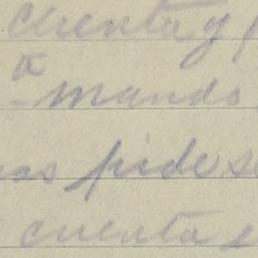 cuenta y
a
mando
as pide s
cuenta